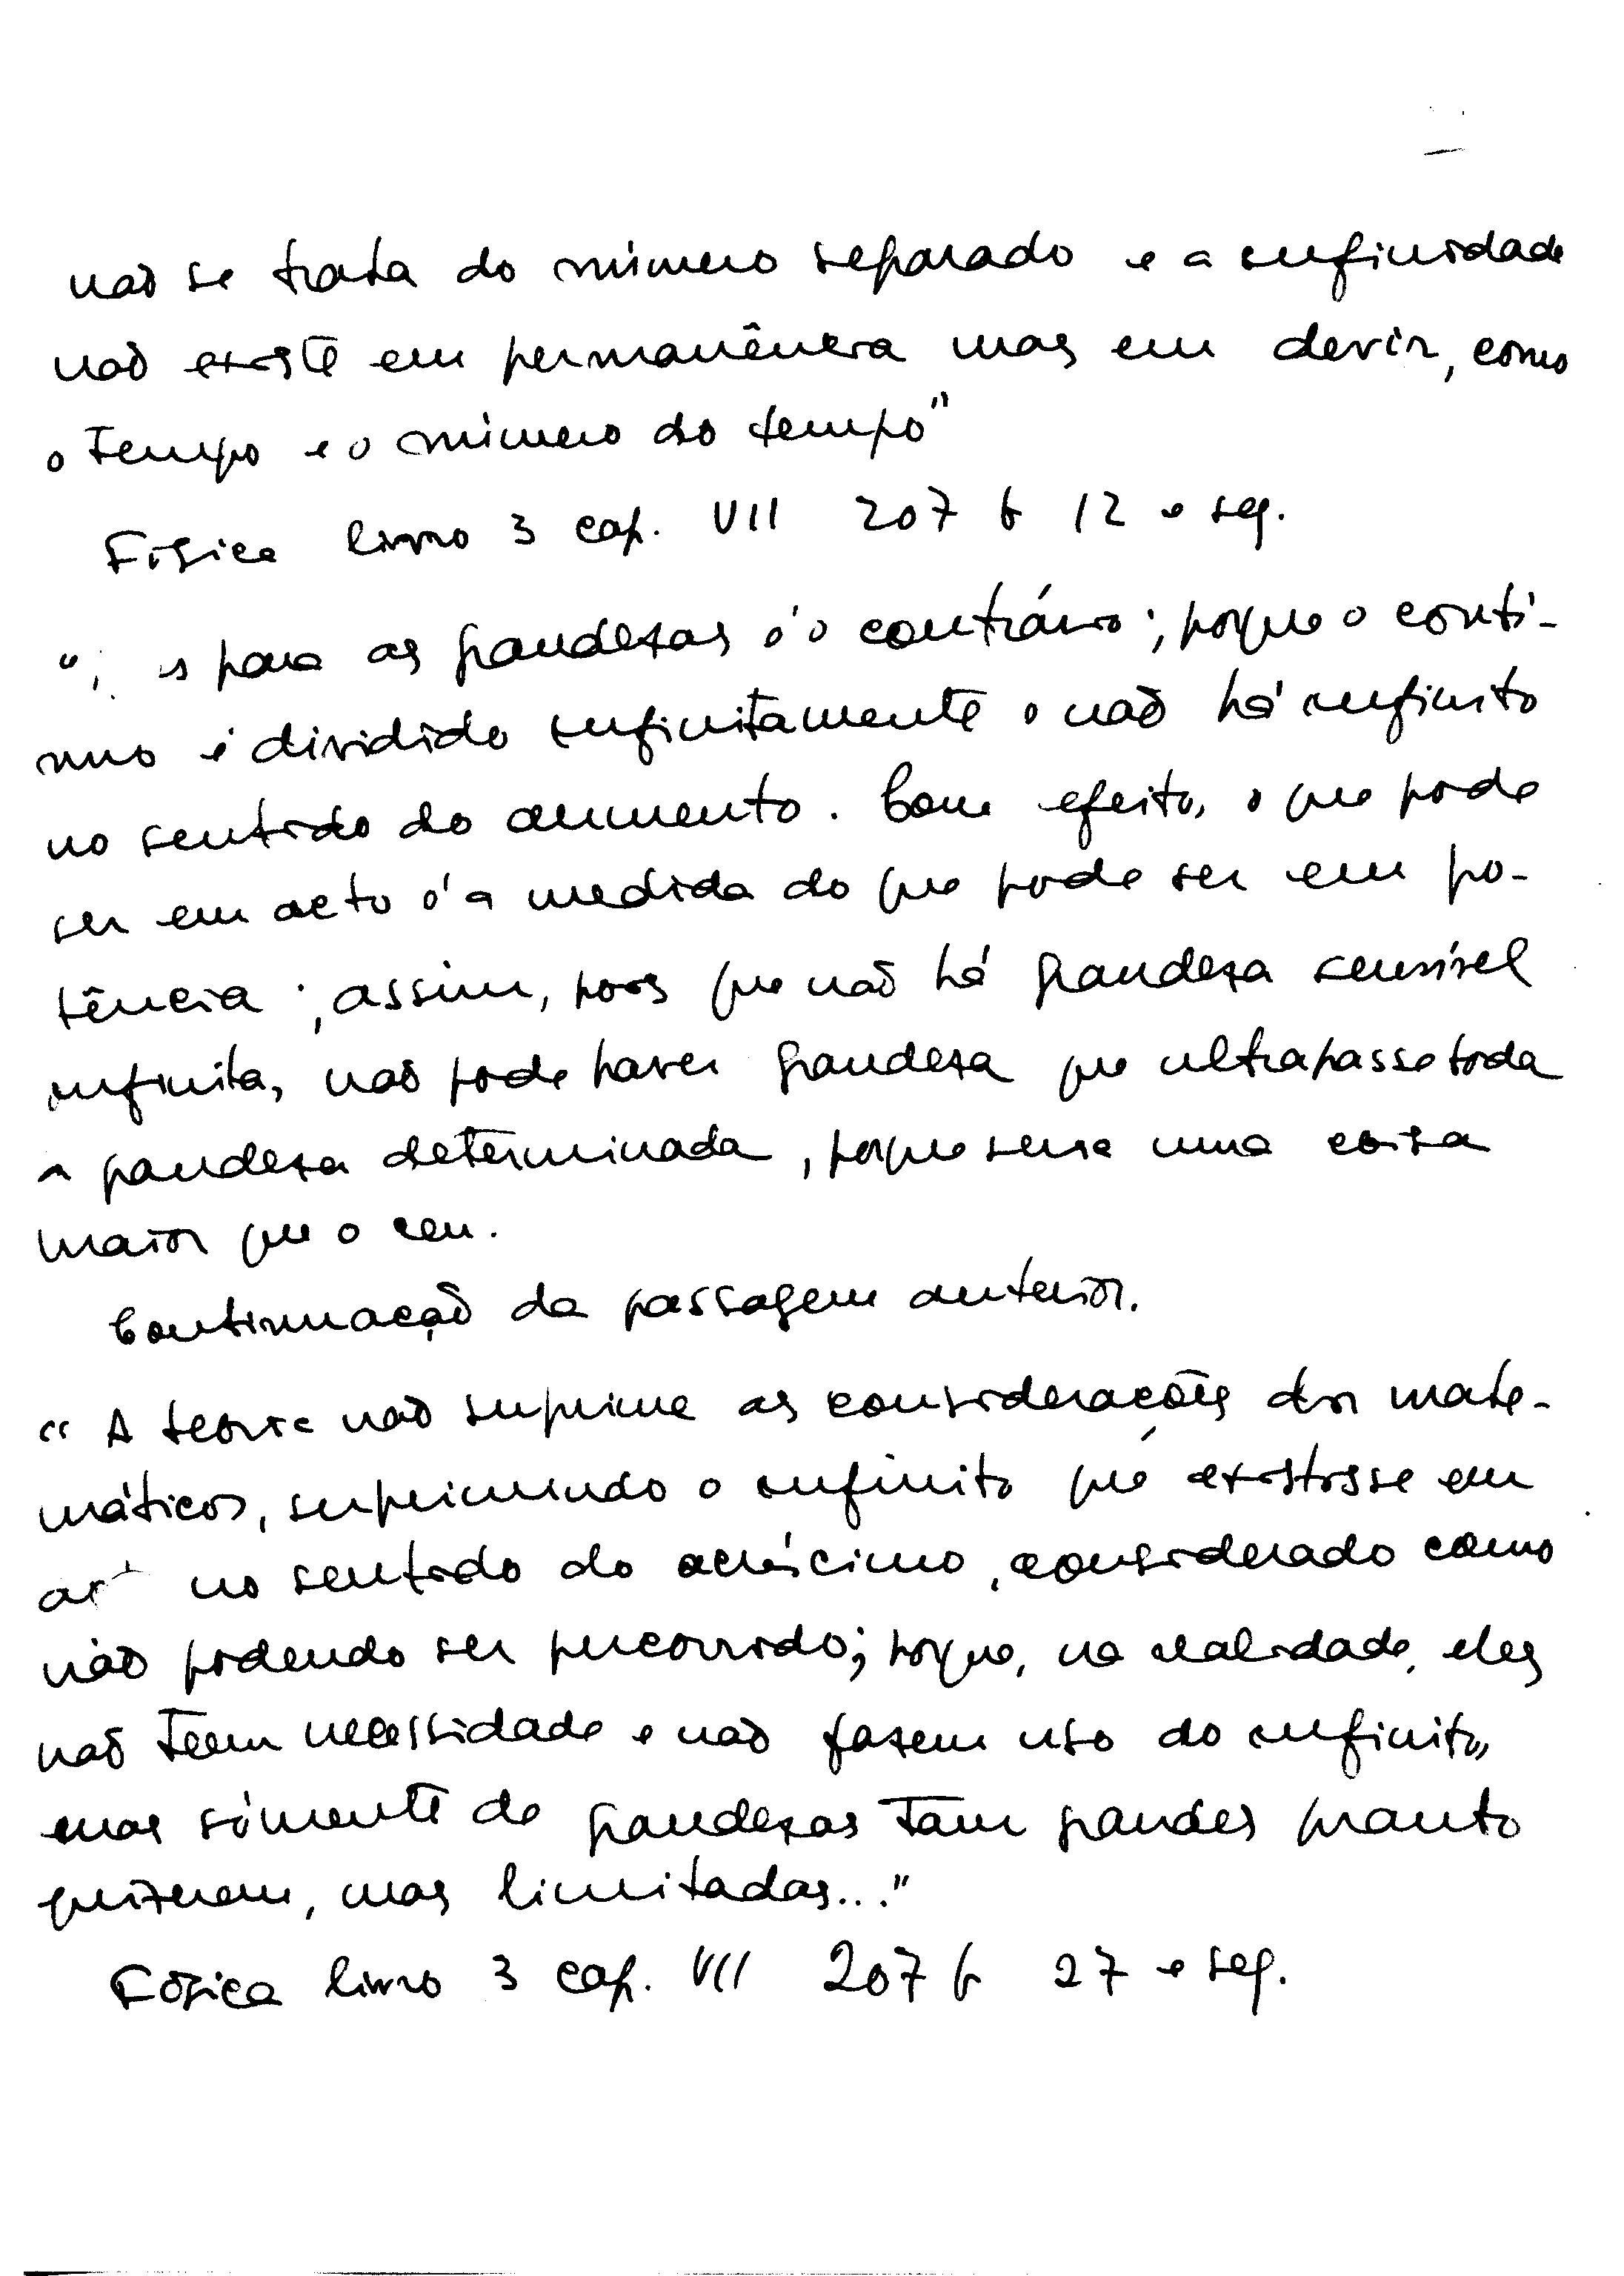 não se trata do número separado e a infinidade
não existe em permanência mas em devir, como
o tempo e o número do tempo"
Física livro 3 cap. VII 207 b 12 e seg.
"; para as grandezas é o contrário; porque o contí-
nuo é dividido infinitamente e não há infinito
no sentido do aumento. Com efeito, o que pode
ser em acto é a medida do que pode ser em po-
tência; assim, pois que não há grandeza sensível
infinita, não pode haver grandeza que ultrapasse toda
a grandeza determinada, porque seria uma coisa
maior que o ceu.
Continuação da passagem anterior.
"A teoria não suprime as considerações dos mate-
máticos, suprimindo o infinito que existisse em
no sentido do acréscimo, considerado como
não podendo ser percorrido; porque, na realidade, eles
não teem necessidade e não fazem uso do infinito,
mas sómente de grandezas tam grandes quanto
quizerem, mas limitadas..."
Física livro 3 cap. VII 207 b 27 e seg.